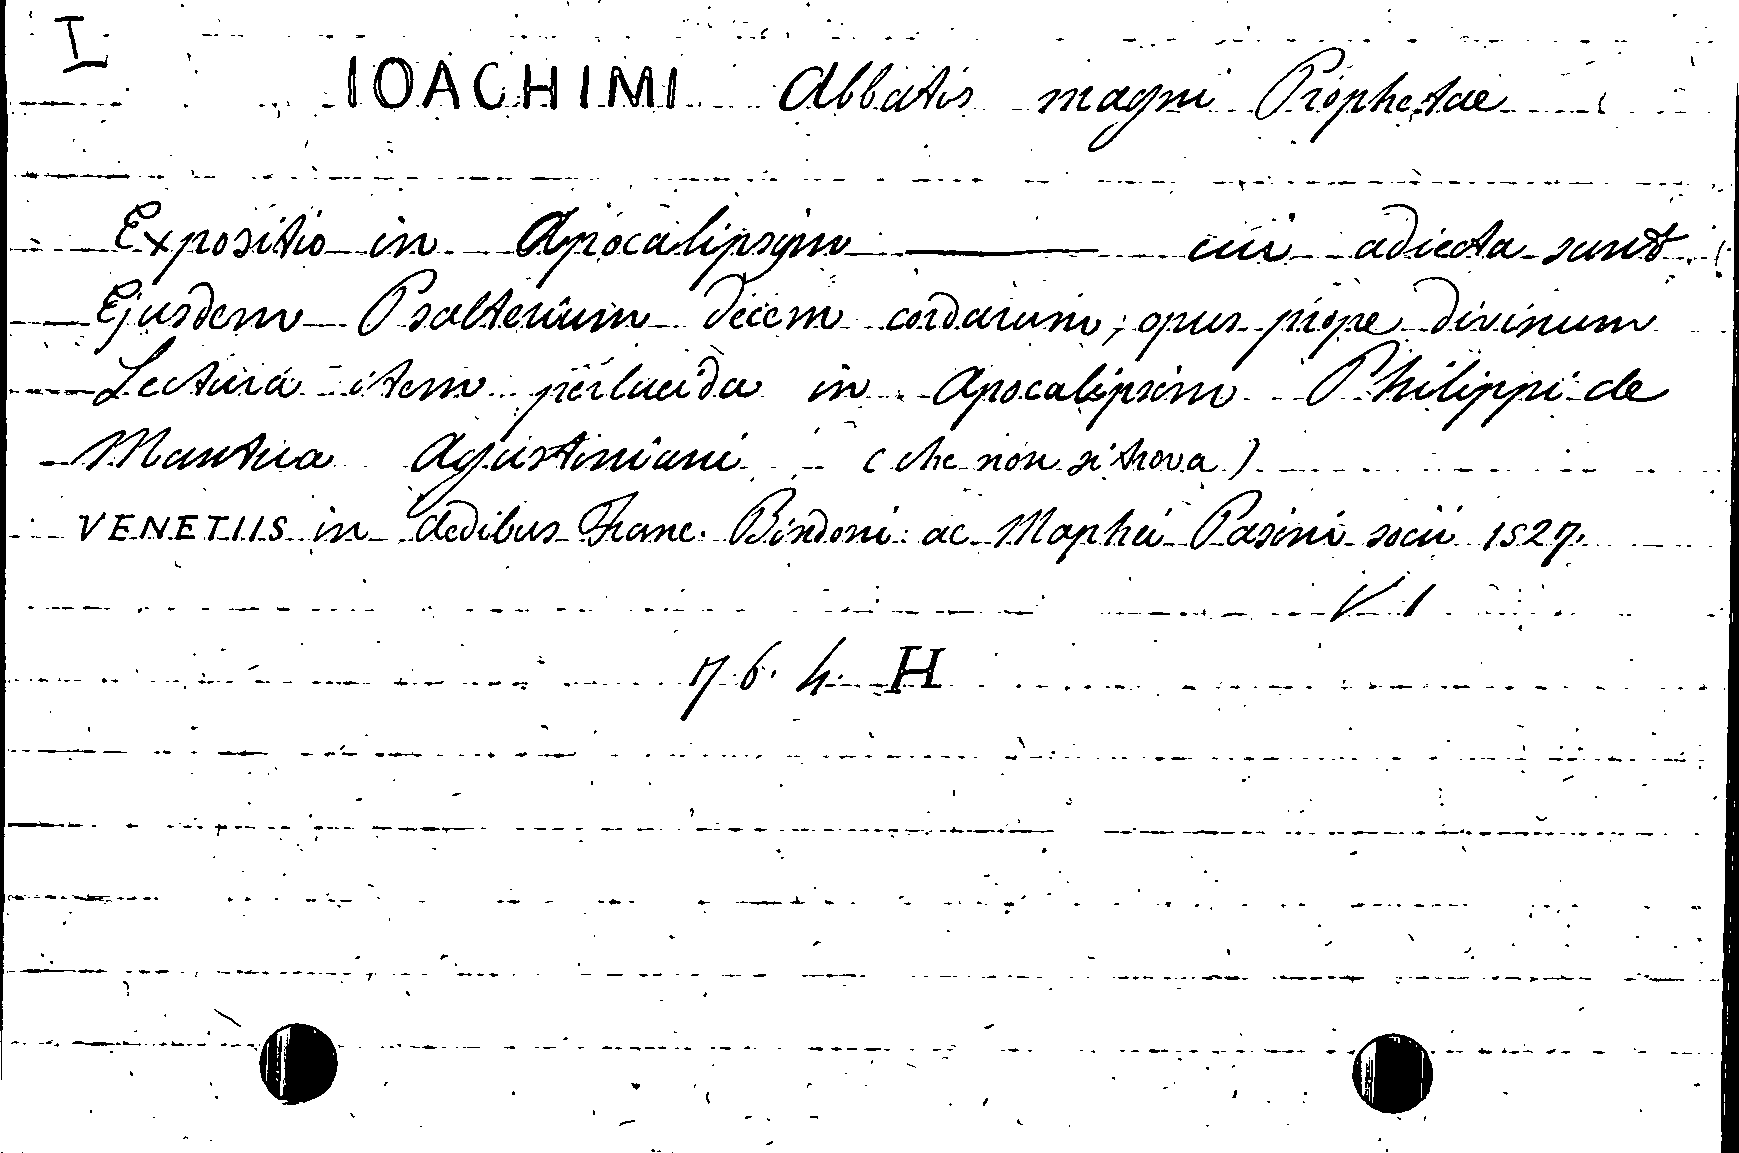 I
IOACHIMI Abbatis magni Prophetae
Expositio in Apocalipsym ——— cui adiecta sunt
Ejusdem Psalterium decem cordarum, opus prope divinum
Lectura item perlucida in Apocalipsim Philippi de
Mantua Agustiniani (che non si trova)
VENETIIS in Aedibus Franc. Bindoni ac Maphei Pasini socii 1527.
V 1
76. 4. H